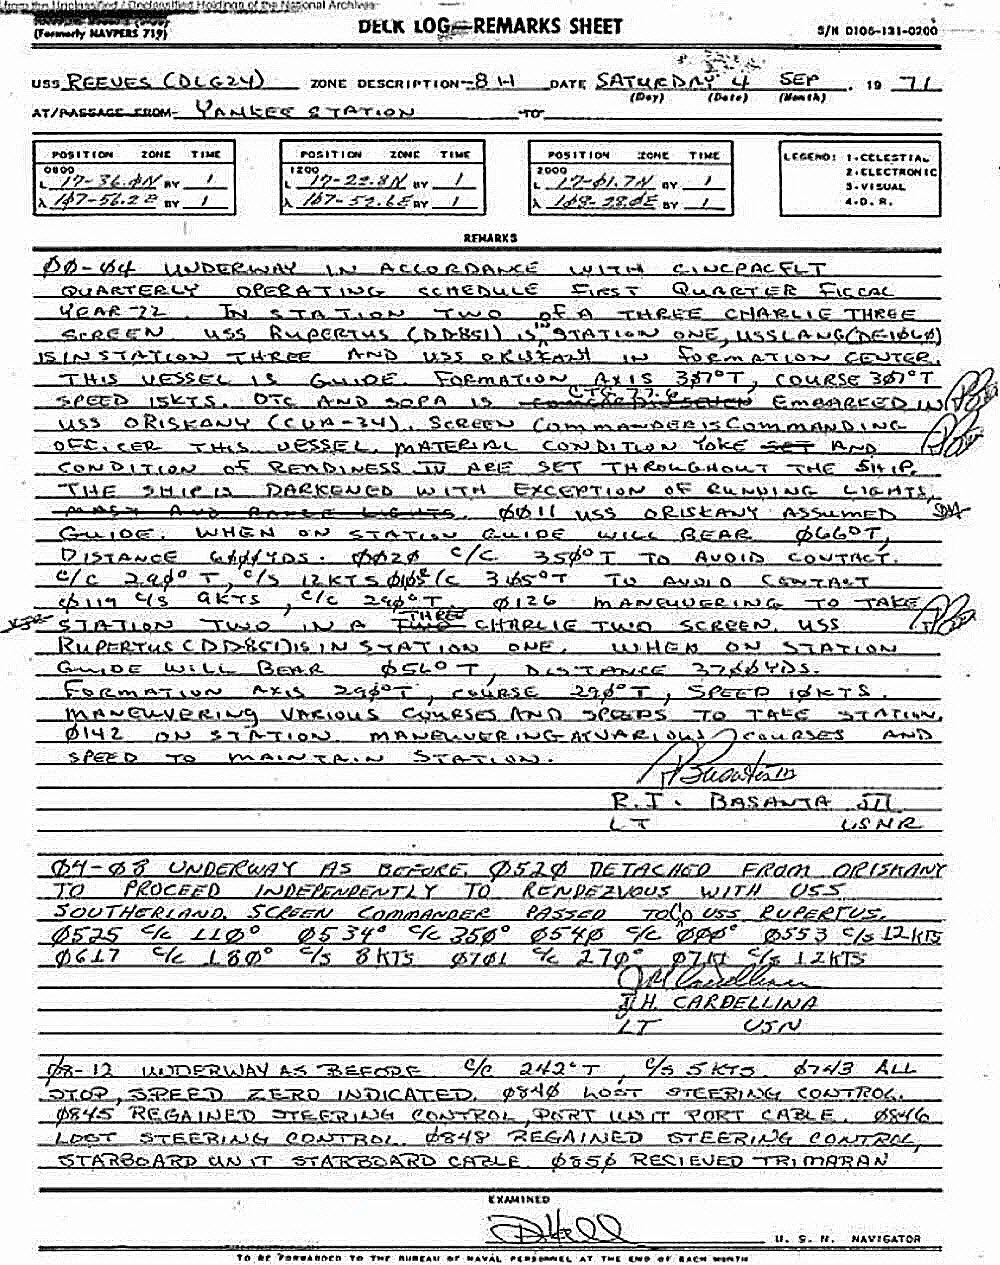 from the Unclassified / Declassified Holdings of the National Archives
(Formerly NAVPERS 719)
DECK LOG—REMARKS SHEET
S/N 0106-131-0200
USS REEVES (DLG24) ZONE DESCRIPTION -8 H DATE SATURDAY 4 SEP , 19 71
(Day) (Date) (Month)
AT/PASSAGE FROM YANKEE STATION TO
POSITION ZONE TIME
0800
L 17-36.0N BY 1
λ 107-56.2E BY 1
POSITION ZONE TIME
1200
L 17-22.8N BY 1
λ 107-52.6E BY 1
POSITION ZONE TIME
2000
L 17-01.7N BY 1
λ 108-28.0E BY 1
LEGEND: 1-CELESTIAL
2-ELECTRONIC
3-VISUAL
4-D.R.
REMARKS
00-04 UNDERWAY IN ACCORDANCE WITH CINCPACFLT
QUARTERLY OPERATING SCHEDULE FIRST QUARTER FISCAL
YEAR 72. IN STATION TWO OF A THREE CHARLIE THREE
SCREEN USS RUPERTUS (DD851) IS IN STATION ONE, USS LANG (DE1060)
IS IN STATION THREE AND USS ORISKANY IN FORMATION CENTER.
THIS VESSEL IS GUIDE. FORMATION AXIS 307°T, COURSE 307°T
SPEED 15KTS. OTC AND SOPA IS CTG 77.6 EMBARKED IN
USS ORISKANY (CVA-34). SCREEN COMMANDER IS COMMANDING
OFFICER THIS VESSEL. MATERIAL CONDITION YOKE SET AND
CONDITION OF READINESS IV ARE SET THROUGHOUT THE SHIP.
THE SHIP IS DARKENED WITH EXCEPTION OF RUNNING LIGHTS,
MAST AND RANGE LIGHTS. 0011 USS ORISKANY ASSUMED
GUIDE. WHEN ON STATION GUIDE WILL BEAR 066°T,
DISTANCE 6000YDS. 0020 C/C 350°T TO AVOID CONTACT.
C/C 290°T, C/S 12KTS 0105 C/C 305°T TO AVOID CONTACT
0119 C/S 9KTS, C/C 290°T 0126 MANEUVERING TO TAKE
STATION TWO IN A TWO THREE CHARLIE TWO SCREEN. USS
RUPERTUS (DD851) IS IN STATION ONE. WHEN ON STATION
GUIDE WILL BEAR 056°T, DISTANCE 3700YDS.
FORMATION AXIS 290°T, COURSE 290°T, SPEED 10KTS.
MANEUVERING VARIOUS COURSES AND SPEEDS TO TAKE STATION.
0142 ON STATION. MANEUVERING AT VARIOUS COURSES AND
SPEED TO MAINTAIN STATION.
R.I. BASANTA III
LT USNR
04-08 UNDERWAY AS BEFORE. 0520 DETACHED FROM ORISKANY
TO PROCEED INDEPENDENTLY TO RENDEZVOUS WITH USS
SOUTHERLAND. SCREEN COMMANDER PASSED TO CO USS RUPERTUS.
0525 C/C 110° 0534 C/C 350° 0540 C/C 000° 0553 C/S 12KTS
0617 C/C 180° C/S 8KTS 0701 C/C 270° C/S 12KTS
J.H. CARDELLINA
LT USN
08-12 UNDERWAY AS BEFORE. C/C 242°T, C/S 5KTS. 0743 ALL
STOP, SPEED ZERO INDICATED. 0840 LOST STEERING CONTROL.
0845 REGAINED STEERING CONTROL, PORT UNIT PORT CABLE. 0846
LOST STEERING CONTROL. 0848 REGAINED STEERING CONTROL,
STARBOARD UNIT STARBOARD CABLE. 0850 RECIEVED TRIMARAN
EXAMINED
U. S. N. NAVIGATOR
TO BE FORWARDED TO THE BUREAU OF NAVAL PERSONNEL AT THE END OF EACH MONTH